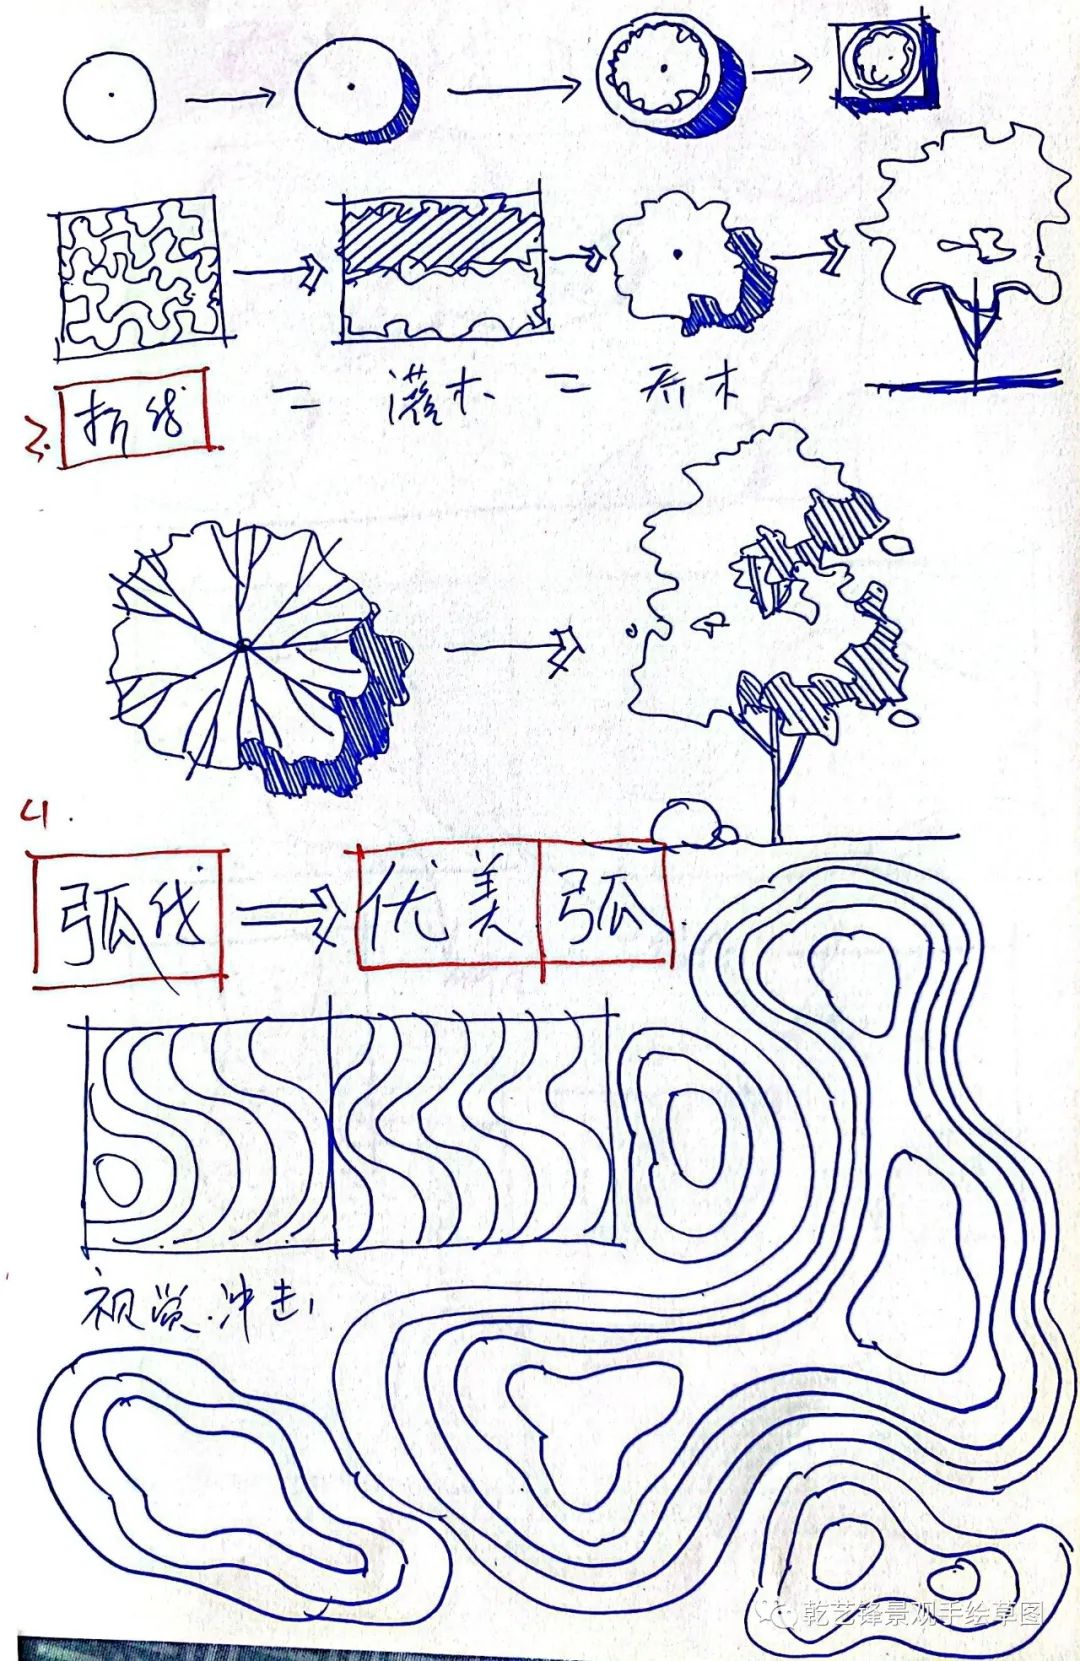 3. 折线 = 灌木 = 乔木
4.
弧线 优美 弧
视觉.冲击
乾艺锋景观手绘草图